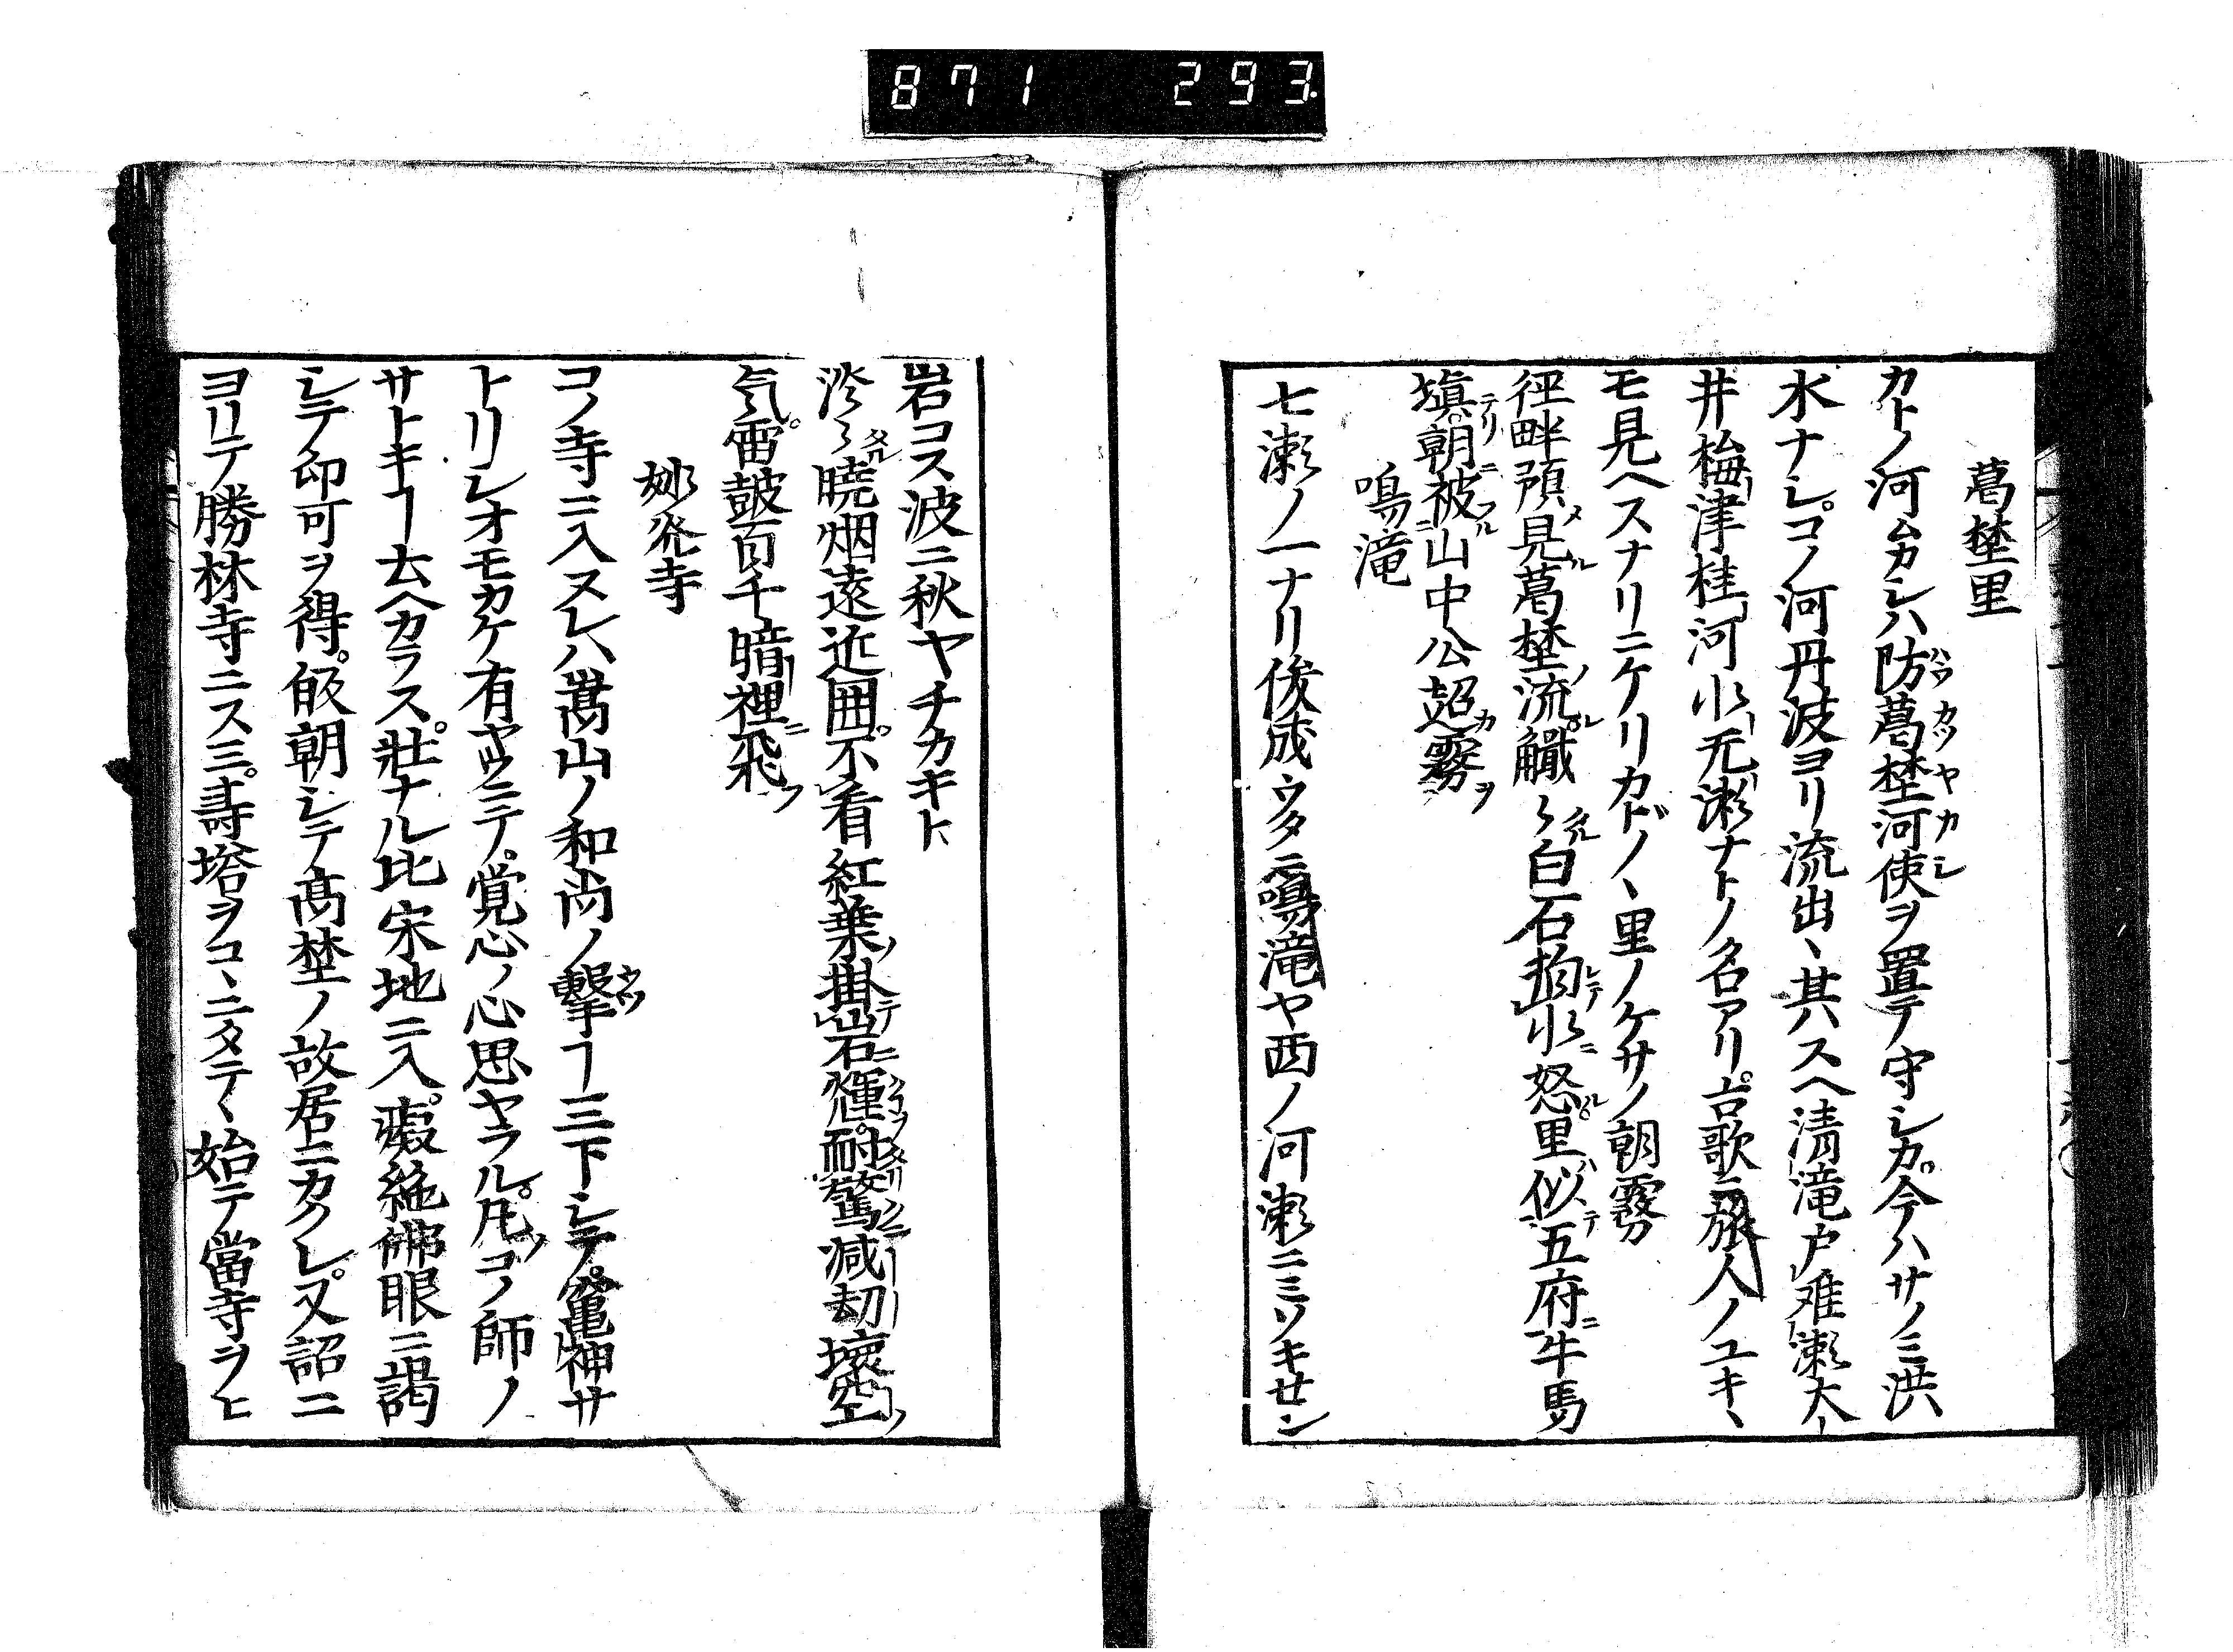 871 293
葛埜里
カトノ河ムカシハ防葛埜河使ヲ置テ守シカ。今ハサノミ洪
水ナシ。コノ河丹波ヨリ流出ヽ其スヘ清滝戸难瀬大
井梅津桂河水无瀬ナトノ名アリ。古歌ニ旅人ノユキヽ
モ見ヘスナリニケリカドノヽ里ノケサノ朝霧
徑畔預見葛埜流。觿々白石拘水怒。里似五府牛馬
塡。朝被山中公超霧
鳴滝
七瀬ノ一ナリ俊成ウタニ鳴滝ヤ西ノ河瀬ニミソキセン
岩コス波ニ秋ヤチカキト
々曉烟遠近囲。不看紅葉掛岩輝。耐驚減劫壞空
気。雷皷百千暗裡飛
妙光寺
コノ寺ニ入ヌレハ嵩山ノ和尚ノ撃ヿ三下シテ。竃神サ
トリシオモカケ有ヤウニテ。覚心ノ心思ヤラル。凡コノ師ノ
サトキヿ云ヘカラス。壯ナル比宋地ニ入。絶佛眼ニ謁
シテ印可ヲ得。皈朝シテ髙埜ノ故居ニカクレ。又詔ニ
ヨリテ勝林寺ニス三。壽塔ヲコヽニタテヽ始テ當寺ヲヒ